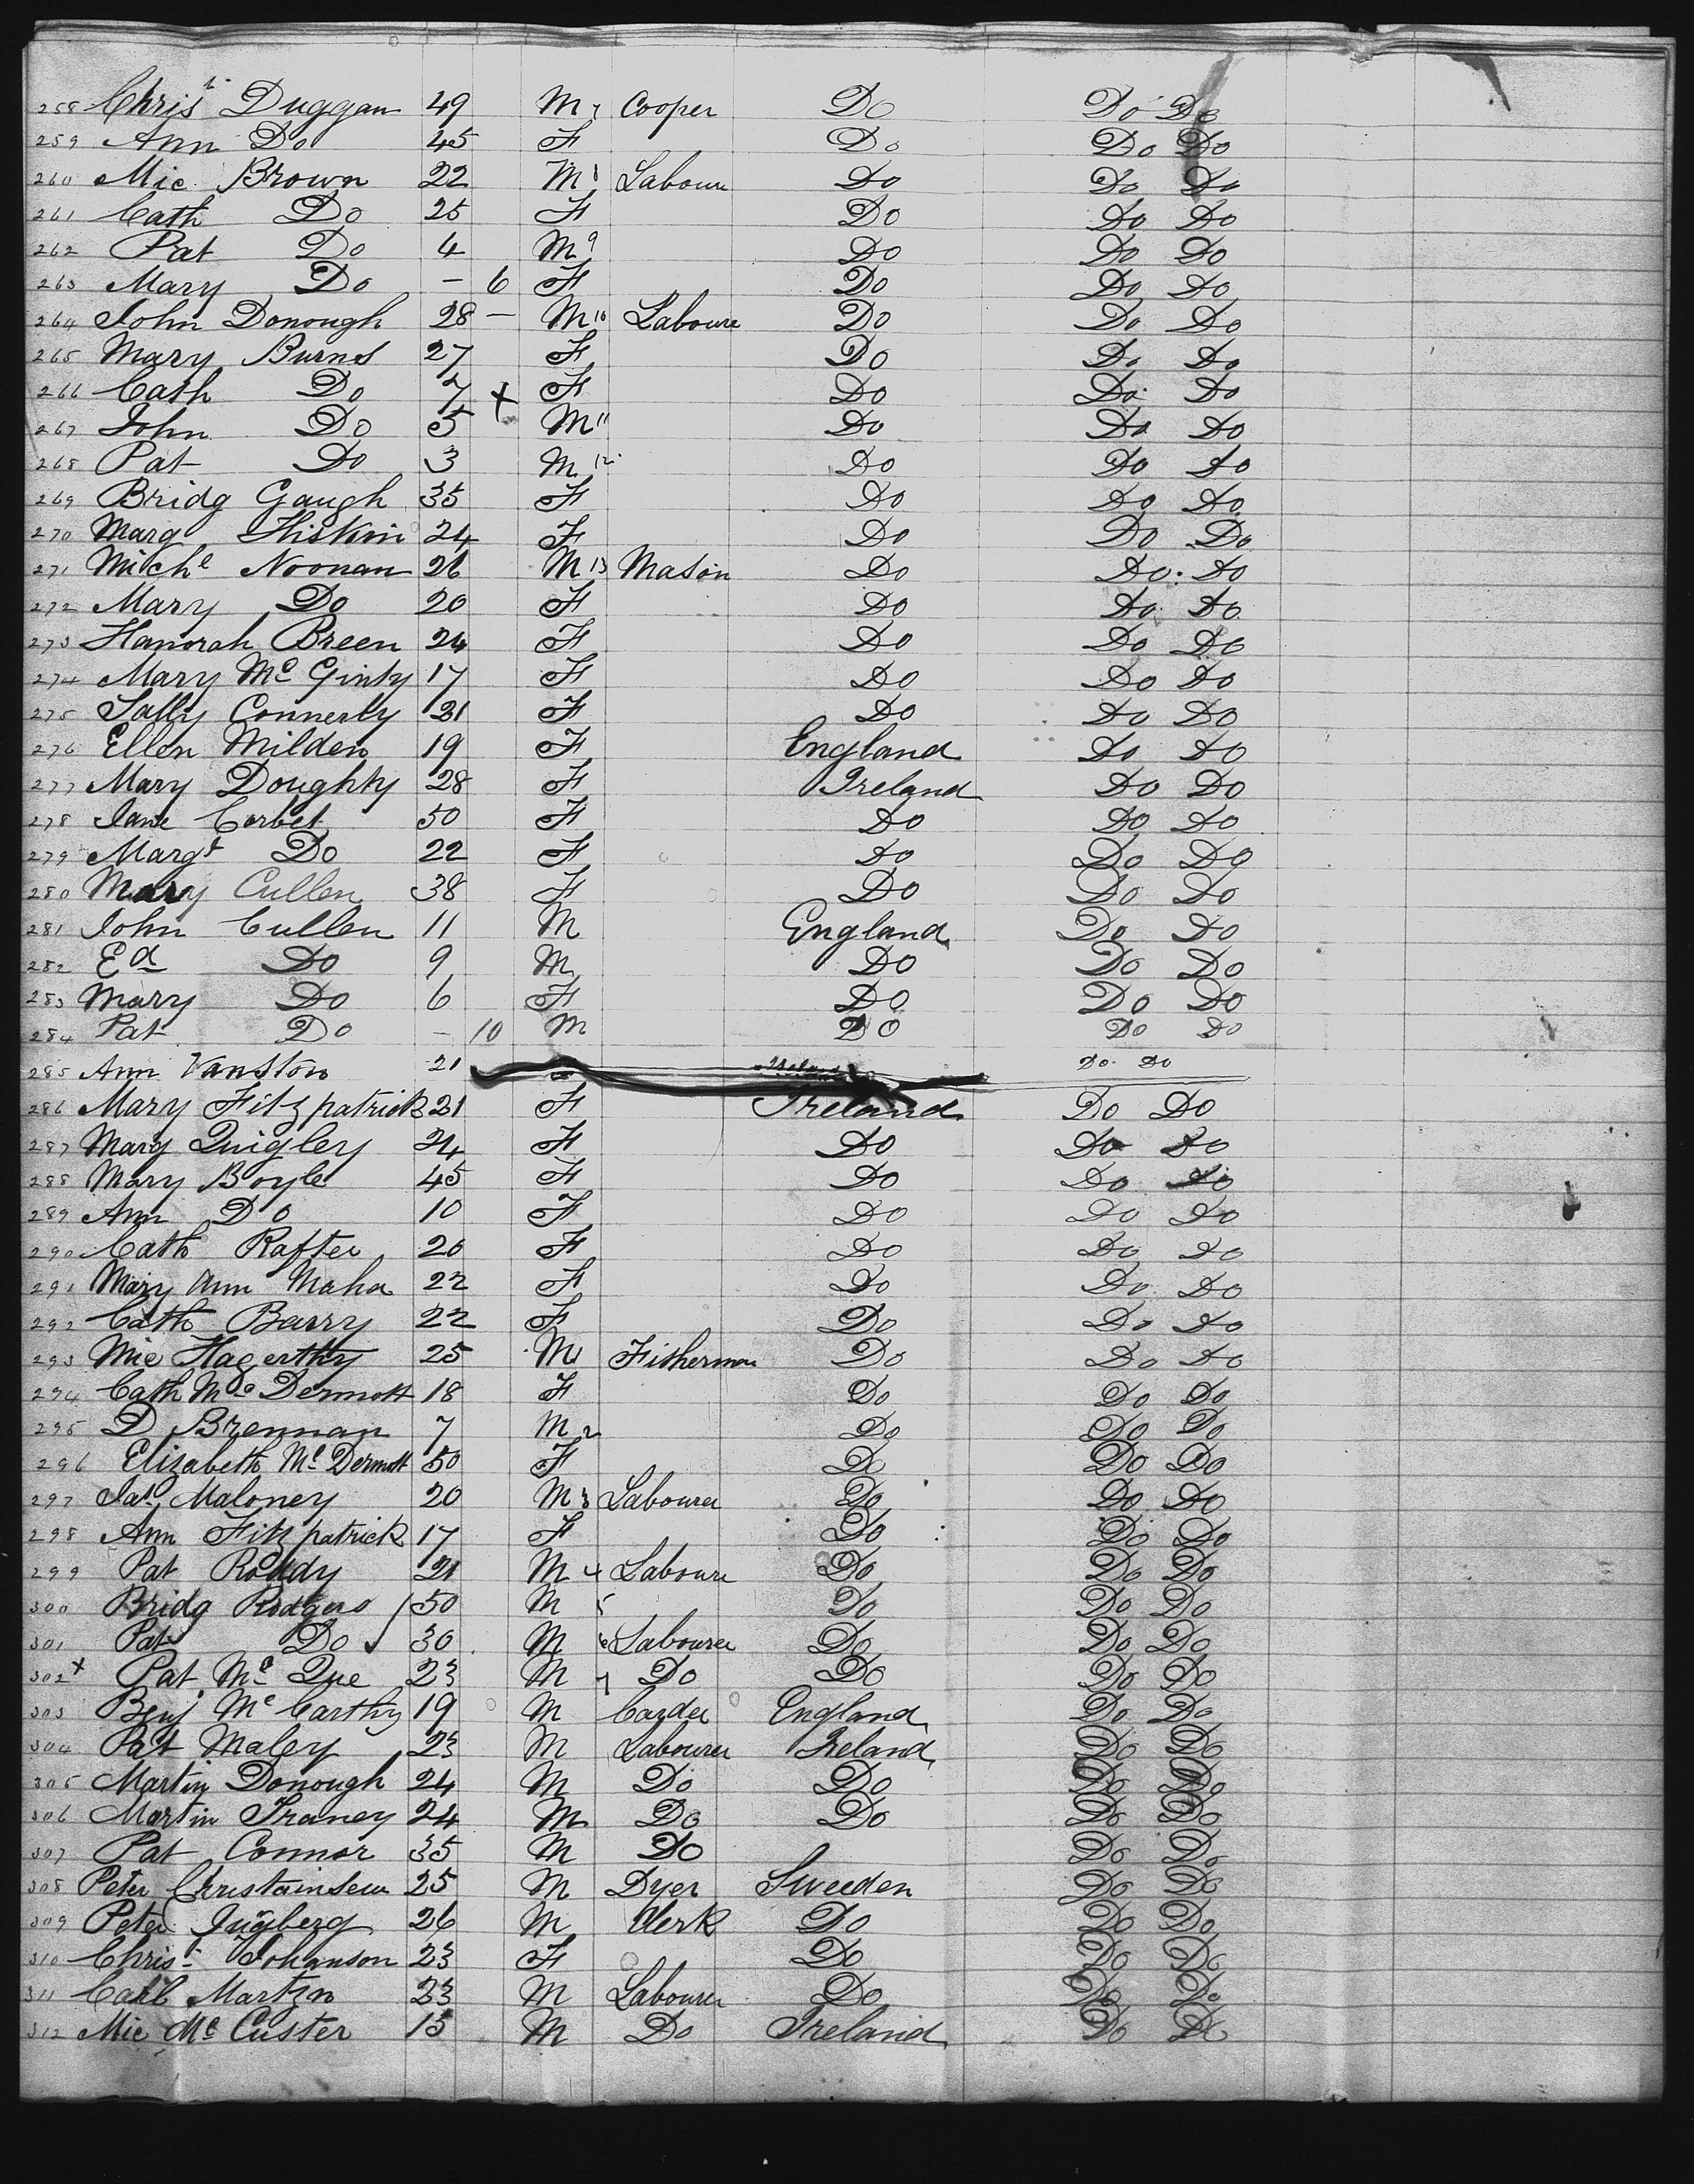 258 Christ Duggan 49 M 7 Cooper Do Do Do
259 Ann Do 45 F Do Do Do
260 Mic Brown 22 M 8 Laboure Do Do Do
261 Cath Do 25 F Do Do Do
262 Pat Do 4 M 9 Do Do Do
263 Mary Do – 6 F Do Do Do
264 John Donough 28 – M 10 Laboure Do Do Do
265 Mary Burns 27 F Do Do Do
266 Cath Do 7 x F Do Do Do
267 John Do 5 M 11 Do Do Do
268 Pat Do 3 M 12 Do Do Do
269 Bridg Gaugh 35 F Do Do Do
270 Marg Hiskin 24 F Do Do Do
271 Michl Noonan 26 M 13 Mason Do Do Do
272 Mary Do 20 F Do Do Do
273 Hanorah Breen 24 F Do Do Do
274 Mary Mc Ginty 17 F Do Do Do
275 Sally Connerly 21 F Do Do Do
276 Ellen Milden 19 F England Do Do
277 Mary Doughty 28 F Ireland Do Do
278 Jane Corbet 50 F Do Do Do
279 Margt Do 22 F Do Do Do
280 Mary Cullen 38 F Do Do Do
281 John Cullen 11 M England Do Do
282 Ed Do 9 M Do Do Do
283 Mary Do 6 F Do Do Do
284 Pat Do – 10 M Do Do Do
285 Ann Vanston 21 Do Do
286 Mary Fitzpatrick 21 F Ireland Do Do
287 Marg Quigley 24 F Do Do Do
288 Mary Boyle 45 F Do Do Do
289 Ann Do 10 F Do Do Do
290 Cath Rafter 20 F Do Do Do
291 Mary Ann Maha 22 F Do Do Do
292 Cath Barry 22 F Do Do Do
293 Mic Hagerthy 25 M 1 Fisherman Do Do Do
294 Cath Mc Dermott 18 F Do Do Do
295 D Brennan 7 M 2 Do Do Do
296 Elizabeth Mc Dermott 50 F Do Do Do
297 Jas Maloney 20 M 3 Labourer Do Do Do
298 Ann Fitzpatrick 17 F Do Do Do
299 Pat Roddy 21 M 4 Laboure Do Do Do
300 Bridg Rodgers 50 M 5 Do Do Do
301 Pat Do 30 M 6 Labourer Do Do Do
302 x Pat Mc Que 23 M 7 Do Do Do Do
303 Benj Mc Carthy 19 M Carder England Do Do
304 Pat Maley 23 M Labourer Ireland Do Do
305 Martin Donough 24 M Do Do Do Do
306 Martin Franey 24 M Do Do Do Do
307 Pat Connor 35 M Do Do Do
308 Peter Christainsen 25 M Dyer Sweeden Do Do
309 Peter Jugberg 26 M Clerk Do Do Do
310 Christ Johanson 23 F Do Do Do
311 Carl Martzn 23 M Labourer Do Do Do
312 Mic Mc Custer 15 M Do Ireland Do Do